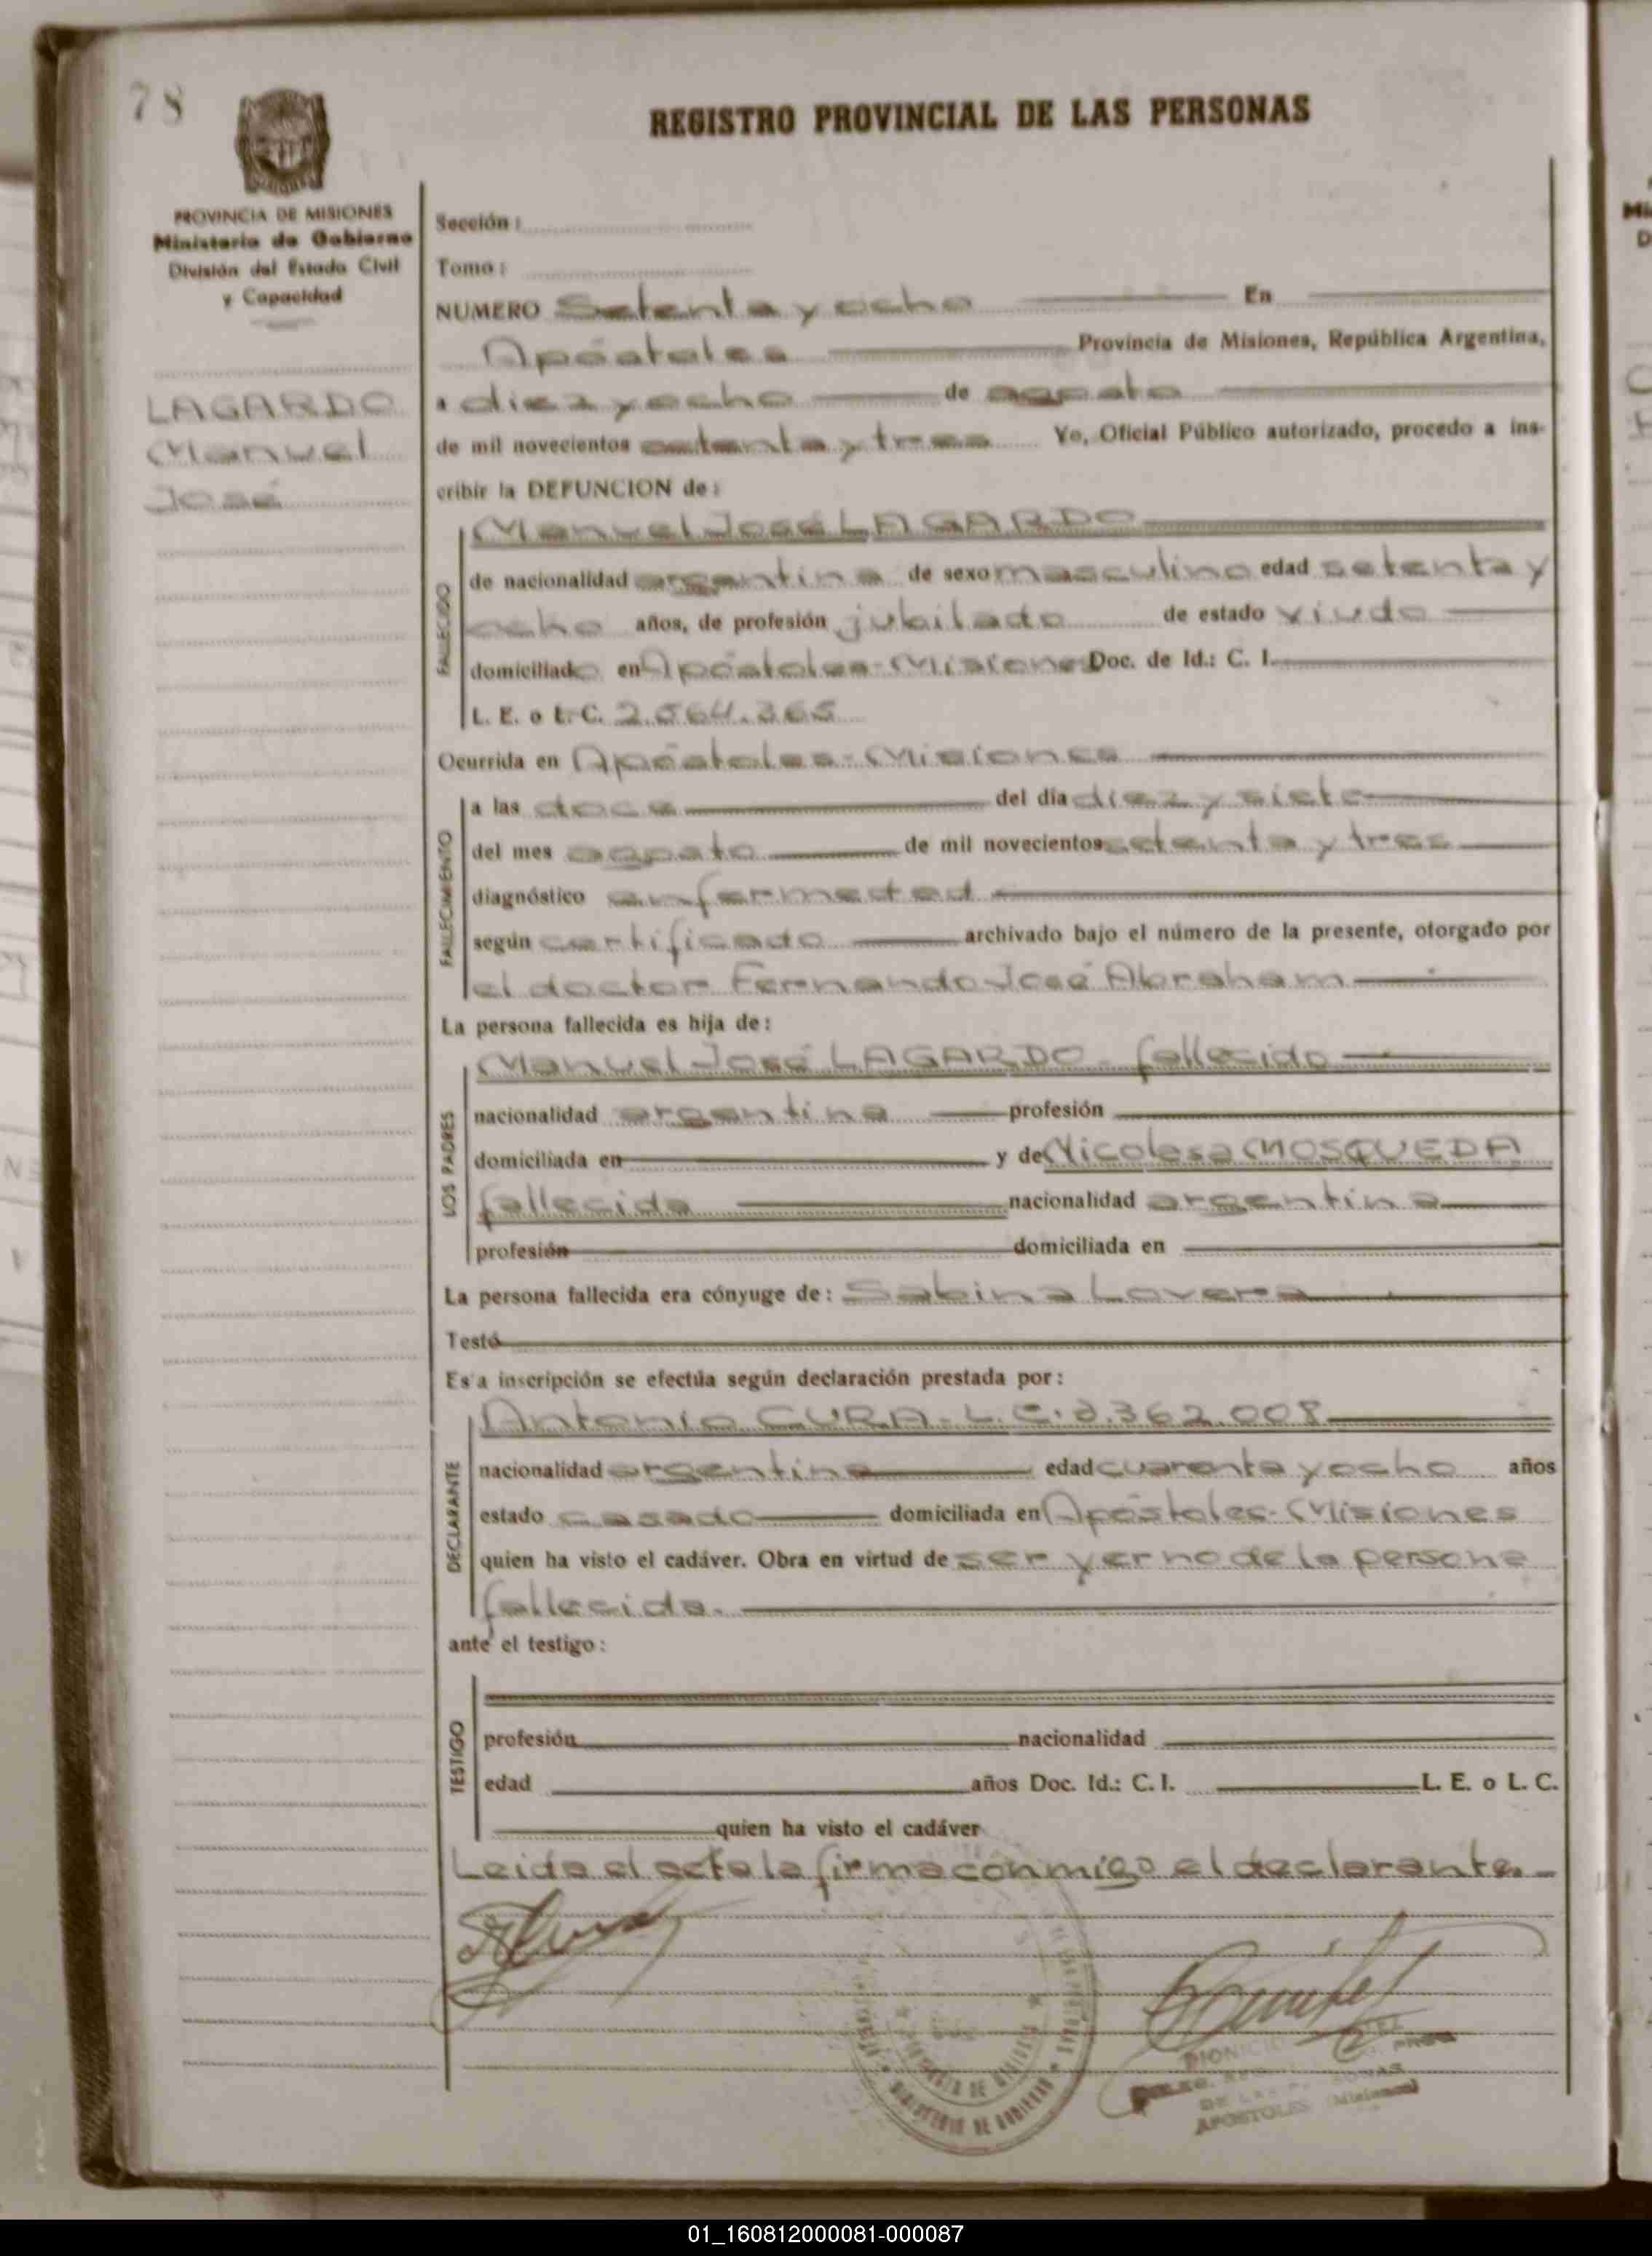 78
REGISTRO PROVINCIAL DE LAS PERSONAS
PROVINCIA DE MISIONES
Ministerio de Gobierno
División del Estado Civil
y Capacidad
LAGARDO
Manuel
José
Sección:
Tomo:
NUMERO Setenta y ocho En
Apóstoles Provincia de Misiones, República Argentina,
a diez y ocho de agosto
de mil novecientos setenta y tres Yo, Oficial Público autorizado, procedo a ins-
cribir la DEFUNCION de:
FALLECIDO
Manuel José LAGARDO
de nacionalidad argentina de sexo masculino edad setenta y
ocho años, de profesión jubilado de estado viudo
domiciliado en Apóstoles-Misiones Doc. de Id.: C. I.
L. E. o L. C. 2.564.365
Ocurrida en Apóstoles-Misiones
FALLECIMIENTO
a las doce del día diez y siete
del mes agosto de mil novecientos setenta y tres
diagnóstico enfermedad
según certificado archivado bajo el número de la presente, otorgado por
el doctor Fernando José Abraham
La persona fallecida es hija de:
LOS PADRES
Manuel José LAGARDO - fallecido
nacionalidad argentina profesión
domiciliada en y de Nicolasa MOSQUEDA
fallecida nacionalidad argentina
profesión domiciliada en
La persona fallecida era cónyuge de: Sabina Lovera
Testó
Esta inscripción se efectúa según declaración prestada por:
DECLARANTE
Antonio CURA - L.E. 2.362.008
nacionalidad argentina edad cuarenta y ocho años
estado casado domiciliada en Apóstoles-Misiones
quien ha visto el cadáver. Obra en virtud de ser yerno de la persona
fallecida.
ante el testigo:
TESTIGO
profesión nacionalidad
edad años Doc. Id.: C. I. L. E. o L. C.
quien ha visto el cadáver
Leida el acta la firma conmigo el declarante.
MINISTERIO DE GOBIERNO
PROVINCIA DE MISIONES
DIONICIO
DE LAS
APOSTOLES (Misiones)
01_160812000081-000087